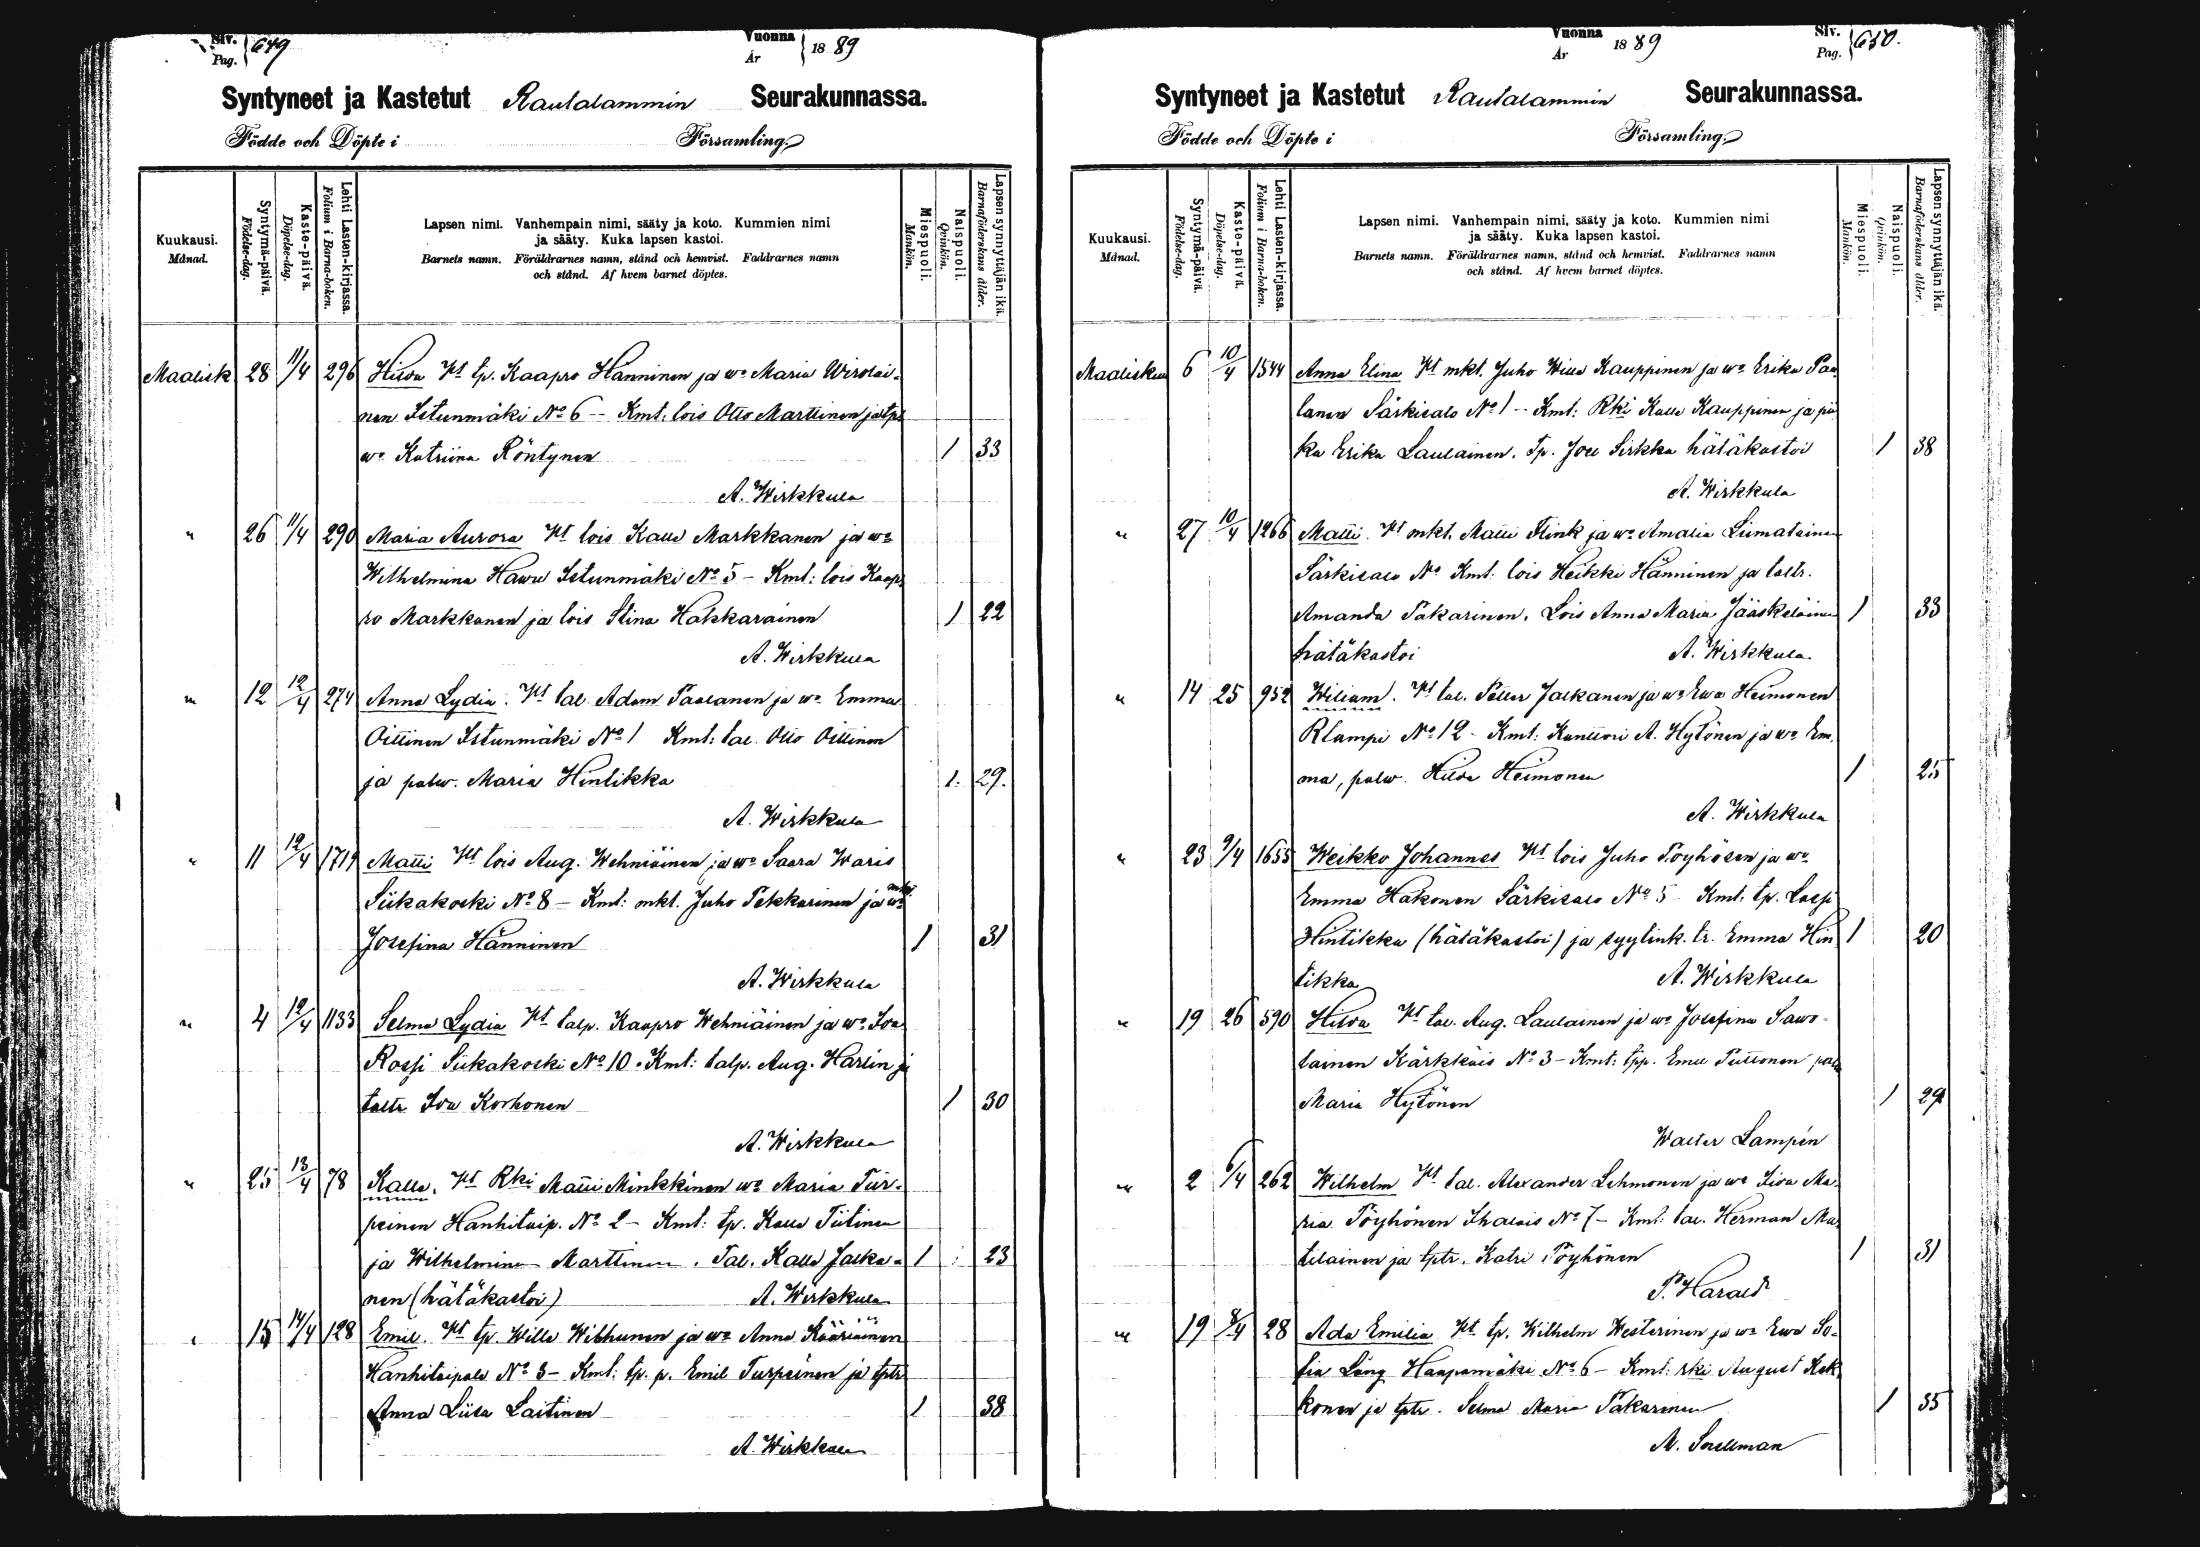 Siv. Pag. 649
Vuonna År 1889
Syntyneet ja Kastetut Rautalammin Seurakunnassa.
Födde och Döpte i Församling
Kuukausi. Månad.
Syntymä-päivä. Födelse-dag.
Kaste-päivä. Döpelse-dag.
Lehti Lasten-kirjassa. Folium i Barna-boken.
Lapsen nimi. Vanhempain nimi, sääty ja koto. Kummien nimi
ja sääty. Kuka lapsen kastoi.
Barnets namn. Föräldrarnes namn, stånd och hemvist. Faddrarnes namn
och stånd. Af hvem barnet döptes.
Miespuoli. Mankön.
Naispuoli. Qvinkön.
Lapsen synnyttäjän ikä. Barnaföderskans ålder.
Maalisk 28 11/4 296 Hilda Vt tp. Kaapro Hänninen ja wo Maria Wirolai-
nen Istunmäki No 6 - Kmt: lois Otto Marttinen ja tpr
wo Katriina Röntynen 1 33
A. Wirkkula
" 26 11/4 290 Maria Aurora Vt lois Kalle Markkanen ja wo
Wilhelmina Hawu Istunmäki No 5 - Kmt: lois Kaap-
ro Markkanen ja lois Stina Hakkarainen 1 22
A. Wirkkula
" 12 12/4 274 Anna Lydia. Vt tal. Adam Paalanen ja wo Emma
Oittinen Istunmäki No 1 Kmt: tal. Otto Oittinen
ja palw. Maria Hintikka 1. 29.
A. Wirkkula
" 11 12/4 1719 Matti Vt lois Aug. Wehniäinen ja wo Saara Waris
Siikakoski No 8 - Kmt: mkt. Juho Pekkarinen ja
Josefina Hänninen 1 31
A. Wirkkula
" 4 12/4 1133 Selma Lydia Vt talp. Kaapro Wehniäinen ja wo Iva
Rossi Siikakoski No 10. Kmt: talp. Aug. Harlin ja
taltr Iva Korhonen 1 30
A. Wirkkula
" 25 13/4 78 Kalle. Vt Rki Matti Minkkinen wo Maria Tur-
peinen Hanhitaip. No 2 - Kmt: tp. Kalle Tiitinen
ja Wilhelmina Marttinen. Tal. Kalle Jalka- 1 23
nen (hätäkastoi) A. Wirkkula
" 15 14/4 128 Emil. Vt tp. Wille Withunen ja wo Anna Kääriäinen
Hanhitaipale No 3 - Kmt: tp. p. Emil Turpeinen ja tptr
Anna Liisa Laitinen 1 38
A. Wirkkula
Vuonna År 1889
Siv. Pag. 650.
Syntyneet ja Kastetut Rautalammin Seurakunnassa.
Födde och Döpte i Församling
Kuukausi. Månad.
Syntymä-päivä. Födelse-dag.
Kaste-päivä. Döpelse-dag.
Lehti Lasten-kirjassa. Folium i Barna-boken.
Lapsen nimi. Vanhempain nimi, sääty ja koto. Kummien nimi
ja sääty. Kuka lapsen kastoi.
Barnets namn. Föräldrarnes namn, stånd och hemvist. Faddrarnes namn
och stånd. Af hvem barnet döptes.
Miespuoli. Mankön.
Naispuoli. Qvinkön.
Lapsen synnyttäjän ikä. Barnaföderskans ålder.
Maaliskuu 6 10/4 1544 Anna Elina Vt mkt. Juho Wille Kauppinen ja wo Erika Paa-
lanen Särkisalo No 1 - Kmt: Rki Kalle Kauppinen ja pii
ka Erika Laulainen. Tp. Joel Sirkka hätäkastoi 1 38
A. Wirkkula
" 27 10/4 1266 Matti. Vt mkt. Matti Flink ja wo Amalia Liimatainen
Särkisalo No Kmt: lois Heikki Hänninen ja taltr.
Amanda Pakarinen. Lois Anna Maria Jääskeläinen 1 33
hätäkastoi A. Wirkkula
" 14 25 952 Wiliam. Vt tal. Petter Jalkanen ja wo Ewa Heimonen
Rlampi No 12 - Kmt: Kanttori A. Hytönen ja wo Em-
ma, palw. Hilda Heimonen 1 25
A. Wirkkula
" 23 9/4 1655 Weikko Johannes Vt lois Juho Pöyhönen ja wo
Emma Hakonen Särkisalo No 5 Kmt: tp. Lassi
Hintikka (hätäkastoi) ja syytink. tr. Emma Hin 1 20
tikka A. Wirkkula
" 19 26 590 Hilda Vt tal. Aug. Laulainen ja wo Josefina Sawo-
lainen Kärkkäis No 3 - Kmt: tpp. Emil Puttonen palw
Maria Hytönen 1 29
Walter Lampén
" 2 6/4 262 Wilhelm Vt tal. Alexander Lehmonen ja wo Liva Ma-
ria Pöyhönen Ihalais No 7 - Kmt: tal. Herman Mar
tilainen ja tptr. Katri Pöyhönen 1 31
P. Harald
" 19 8/4 28 Ada Emilia Vt tp. Wilhelm Westerinen ja wo Ewa So-
fia Lång Haapamäki No 6 - Kmt: rki August Kek
konen ja tptr. Selma Maria Pakarinen 1 35
A. Snellman